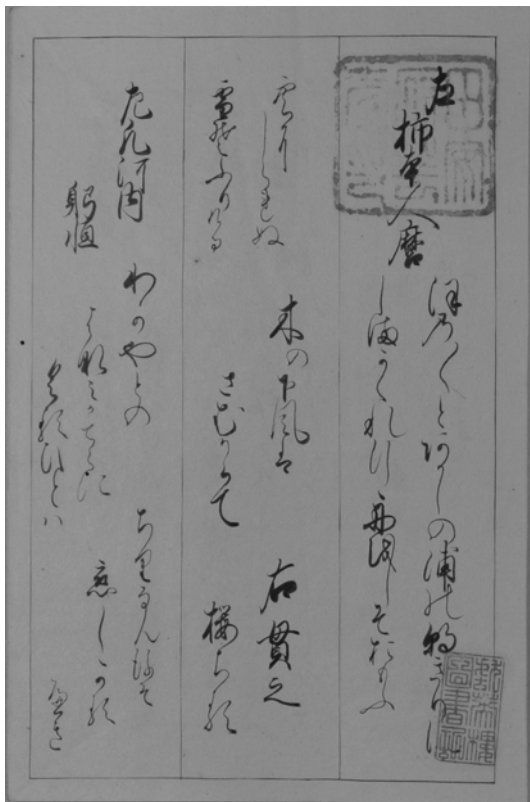 左 柿本人麿
ほの〱とあかしの浦の朝きりに
しまかくれ行舟をしそおもふ
右 貫之
桜ちる
木の下風は
さむからて
空にしられぬ
雪そふりける
左 凡河内
躬恒
わかやとの
はなミかてらに
くるひとハ
ちりなん後そ
恋しかる
へき